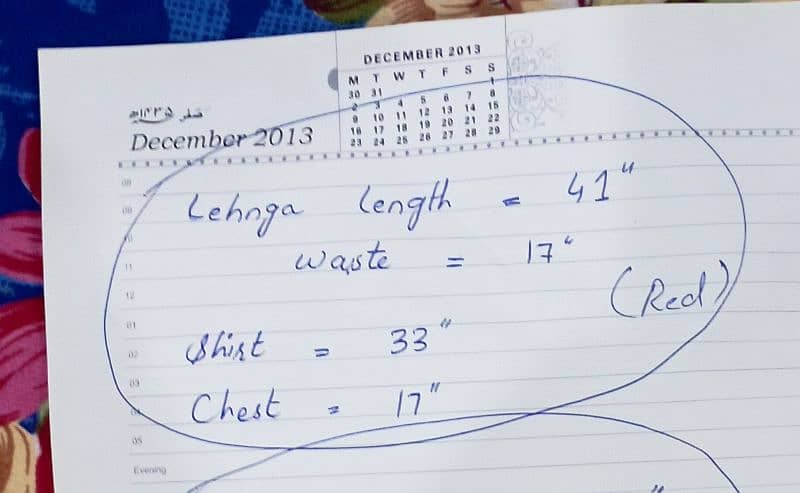 DECEMBER 2013
M T W T F S S
30 31 1
2 3 4 5 6 7 8
9 10 11 12 13 14 15
16 17 18 19 20 21 22
23 24 25 26 27 28 29
صفر ۱۴۳۵ھ
December 2013
08
09
10
11
12
01
02
03
04
05
Evening
Lehnga length = 41"
waste = 17"
(Red)
Shirt = 33"
Chest = 17"